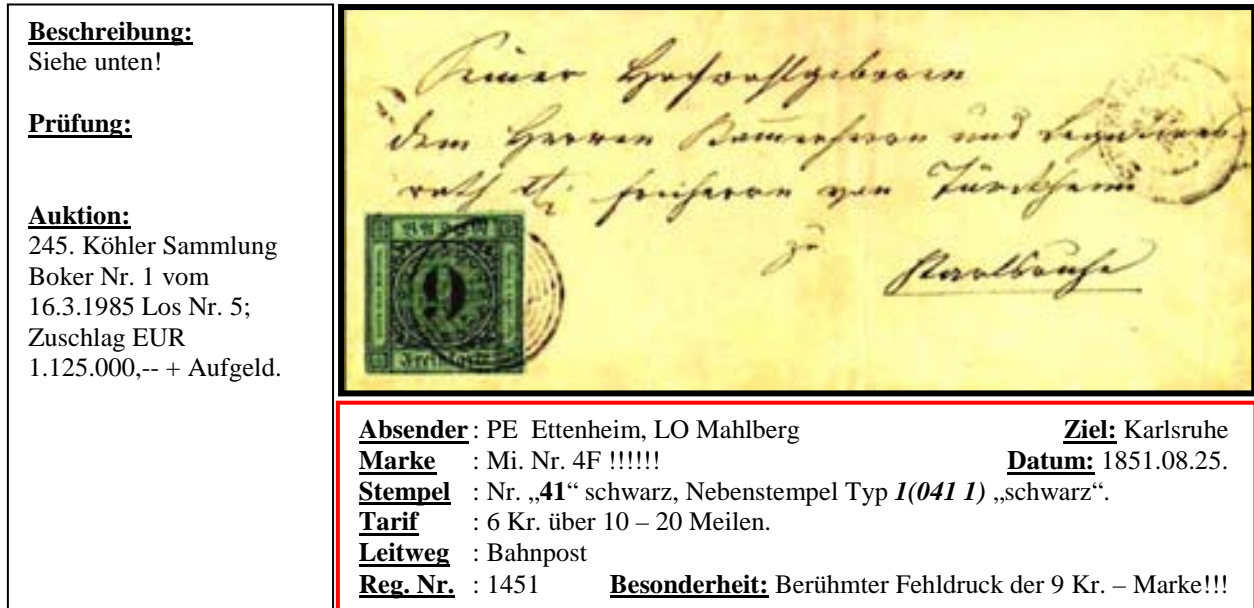 Beschreibung:
Siehe unten!
Prüfung:
Auktion:
245. Köhler Sammlung
Boker Nr. 1 vom
16.3.1985 Los Nr. 5;
Zuschlag EUR
1.125.000,-- + Aufgeld.
Seiner Hochwohlgeboren
dem Herren Kam̅erherrn und Legations-
rath Freiherrn von Türckheim
zu
Karlsruhe
BADEN
9
Freimarke
Absender : PE Ettenheim, LO Mahlberg Ziel: Karlsruhe
Marke : Mi. Nr. 4F !!!!!! Datum: 1851.08.25.
Stempel : Nr. „41“ schwarz, Nebenstempel Typ 1(041 1) „schwarz“.
Tarif : 6 Kr. über 10 – 20 Meilen.
Leitweg : Bahnpost
Reg. Nr. : 1451 Besonderheit: Berühmter Fehldruck der 9 Kr. – Marke!!!